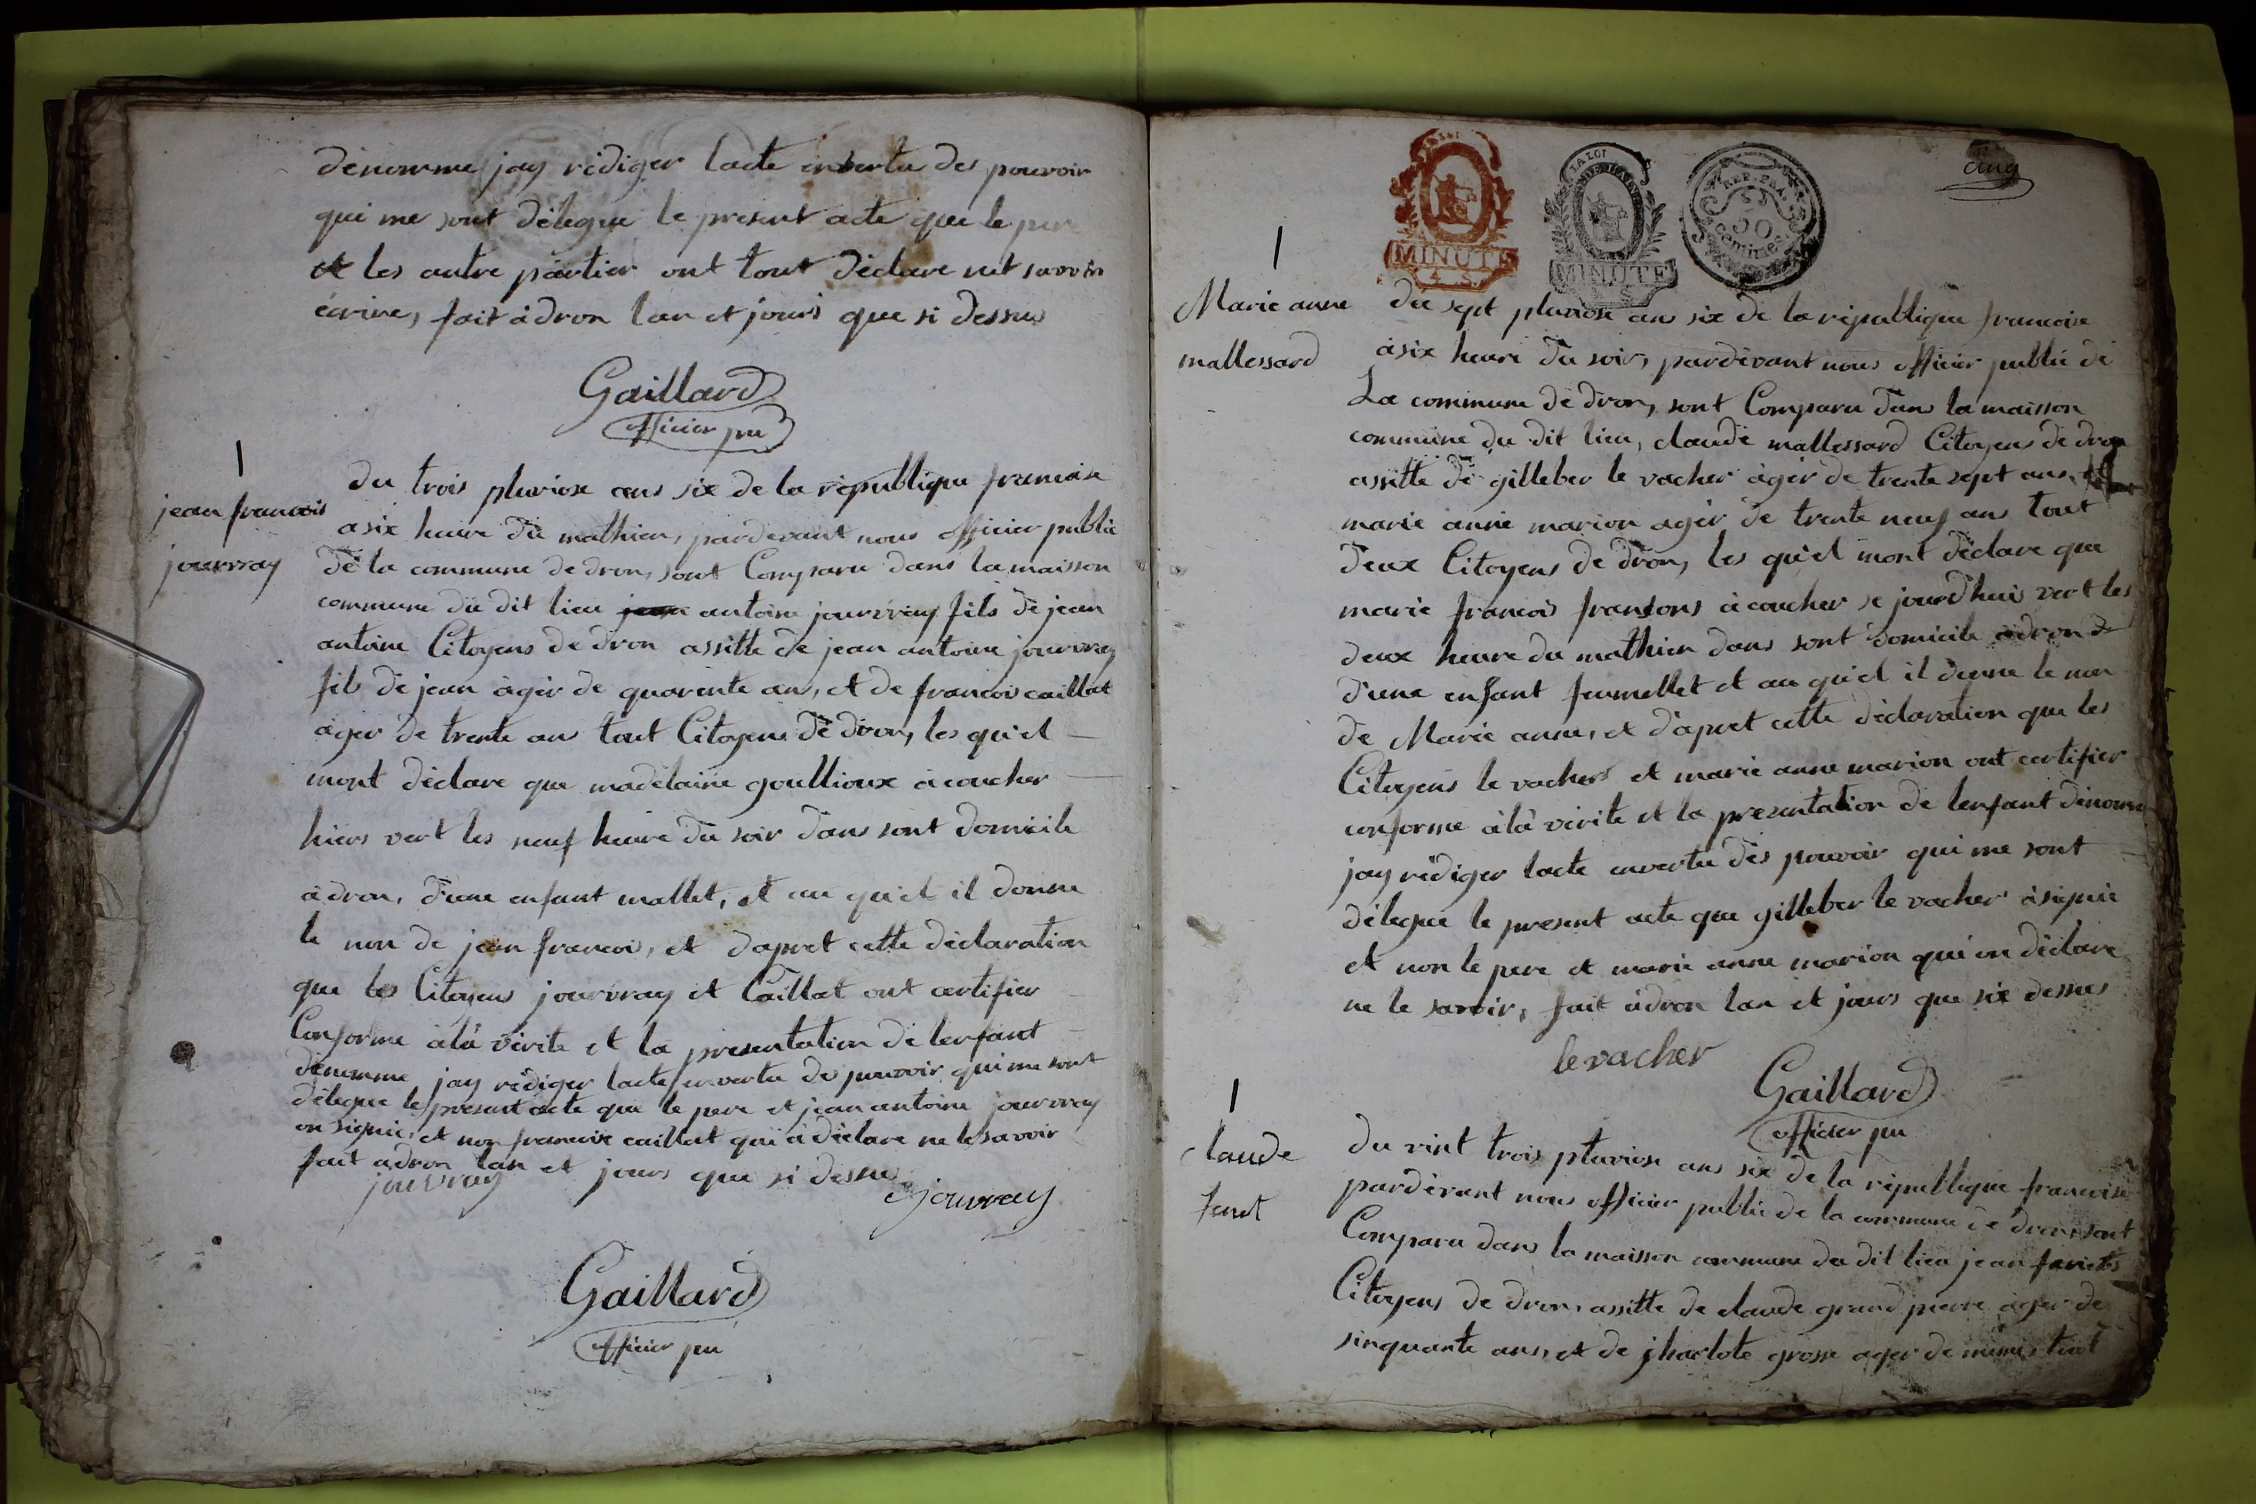 dénomme jay rédiger lacte envertu des pouvoir
qui me sont délegue le present acte que le per
et les autre partier ont tout déclare net savoir
écrire, fait à dron lan et jours que si dessus
Gaillard
officier pu
jean francois
jourvray
du trois pluviose ans six de la république francoise
a six heure du mathien, pardevant nous officier publié
de la commune de dron, sont Comparu dans la maisson
commune du dit lieu antoine jourvray fils de jean
antoine Citoyens de dron assitte de jean antoine jourvray
fils de jean àger de quarente ans, et de francois caillat
àger de trente ans tout Citoyens de dron, les qu'el
mont déclare que madelaine goullioux à coucher
hiers vert les neuf heure du soir dans sont domicile
à dron, d'une enfant mallet, et au qu'el il donne
le non de jean francois, et dapret cette déclaration
que les Citoyens jourvray et Caillat ont certifier
Conforme à là vérite et la presentation de lenfant
dénomme jay rédiger lacte envertu des pouvoir qui me sont
délegue le present acte que le pere et jean antoine jourvray
on signie, et non francoise caillat qui à déclare ne le savoir
fait a dron lan et jours que si dessu
jouvray
jouvray
Gaillard
officier pu
cinq
MINUTE
4. S.
LA LOI
MINUTE
S
REP. FRA.
50
centimes
Marie anne
mallessard
du sept pluviose ans six de la république francoise
à six heure du soir, pardevant nous officier publié de
La commune de dron, sont Comparu dans la maisson
commune du dit lieu, claude mallessard Citoyens de dron
assitte de gilleber le vacher àger de trente sept ans,
marie anne marion ager de trente neuf ans tout
deux Citoyens de dron, les qu'el mont déclare que
marie francois fransons à coucher se jourd'hui vert les
deux heure du mathien dans sont domicile à dron
d'une enfant fumellet et au qu'el il donne le non
de Marie anne, et dapret cette déclaration que les
Citoyens le vacher et marie anne marion ont certifier
conforme à là vérite et la presentation de lenfant dénomme
jay rédiger lacte envertu des pouvoir qui me sont
délegue le present acte que gilleber le vacher à signie
et non le pere et marie anne marion qui on déclare
ne le savoir, fait à dron lan et jours que six dessus
le vacher
Gaillard
officier pu
Claude
feurt
du vint trois pluviose ans six de la république francoise
pardevant nous officier publié de la commune de dron, sont
Comparu dans la maisson commune du dit lieu jean
Citoyens de dron, assitte de claude grand pierre àger de
sinquante ans, et de jharlote grosse ager de mime tout